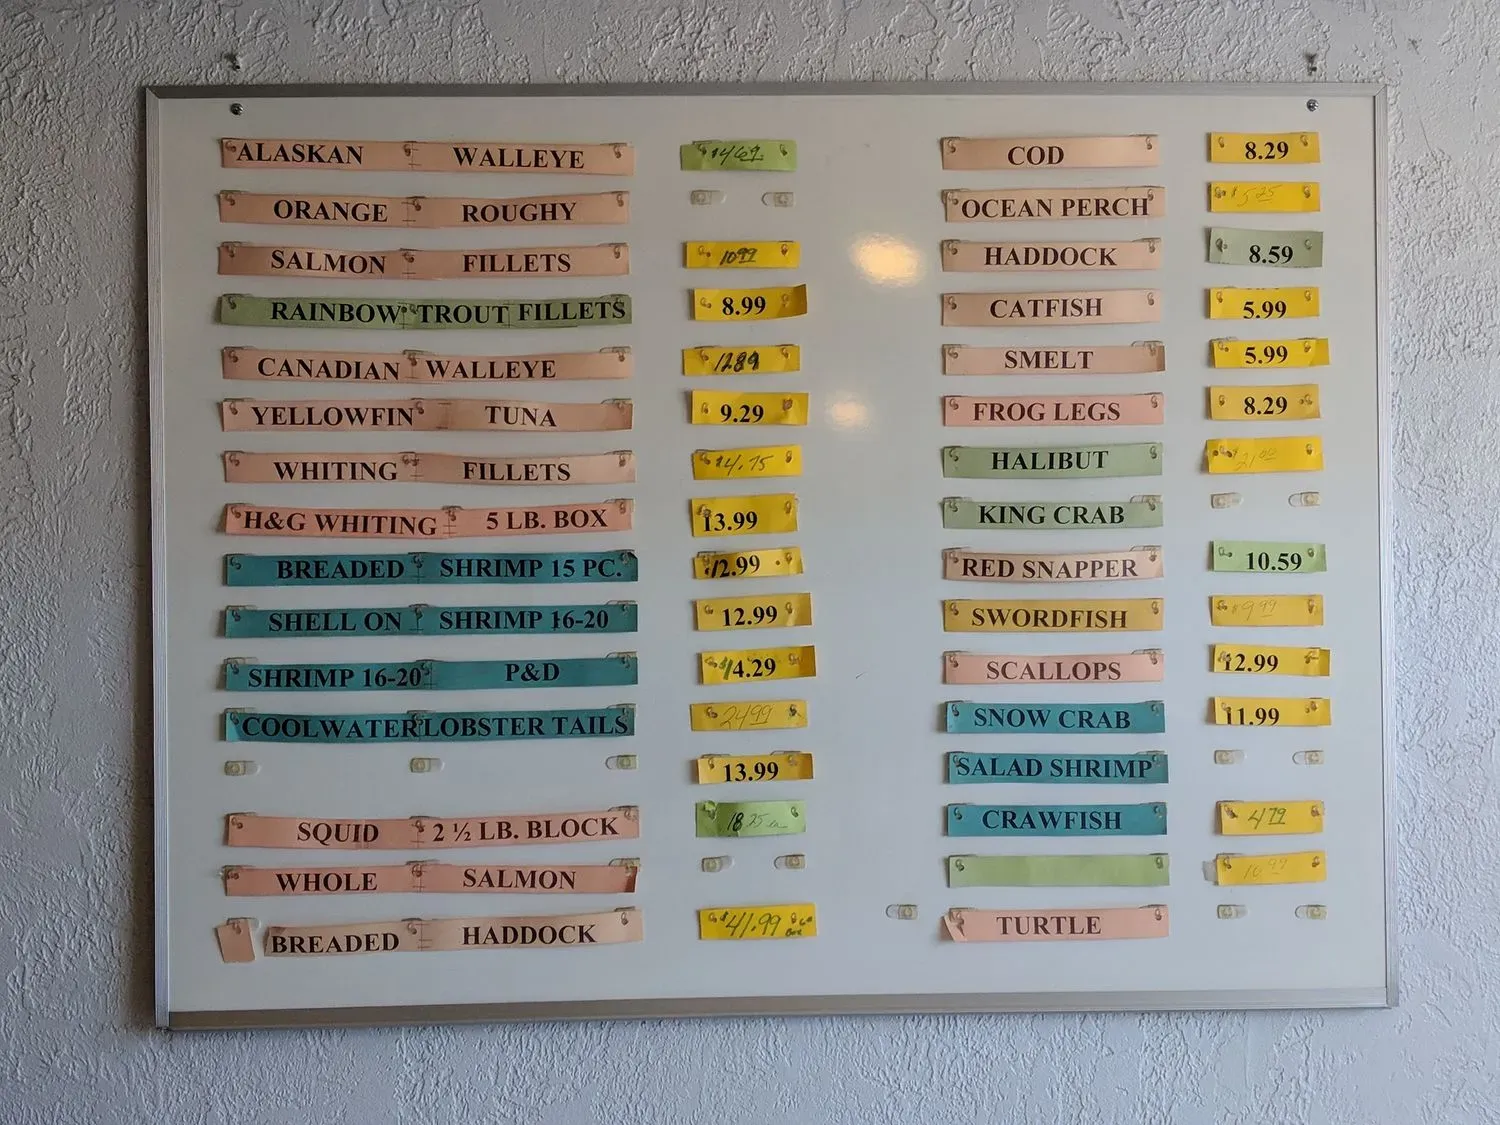 ALASKAN WALLEYE $4.69
ORANGE ROUGHY
SALMON FILLETS 10.99
RAINBOW TROUT FILLETS 8.99
CANADIAN WALLEYE 12.89
YELLOWFIN TUNA 9.29
WHITING FILLETS $4.75
H&G WHITING 5 LB. BOX 13.99
BREADED SHRIMP 15 PC. 12.99
SHELL ON SHRIMP 16-20 12.99
SHRIMP 16-20 P&D 14.29
COOLWATER LOBSTER TAILS 24.99
13.99
SQUID 2 ½ LB. BLOCK 18.25 ea
WHOLE SALMON
BREADED HADDOCK $41.99
COD 8.29
OCEAN PERCH $5.25
HADDOCK 8.59
CATFISH 5.99
SMELT 5.99
FROG LEGS 8.29
HALIBUT $21.00
KING CRAB
RED SNAPPER 10.59
SWORDFISH $9.99
SCALLOPS 12.99
SNOW CRAB 11.99
SALAD SHRIMP
CRAWFISH 4.79
10.99
TURTLE